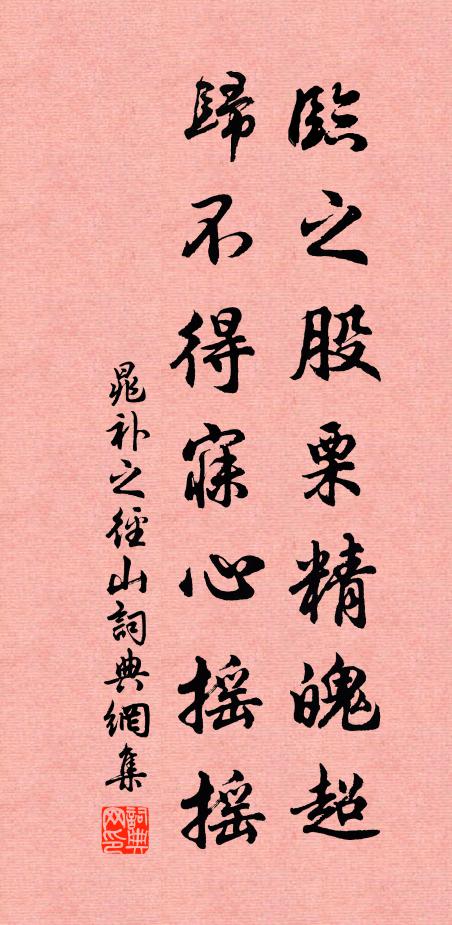 臨之股栗精魄超
歸不得寐心摇摇
晁补之徑山詞典網集
詞典网印